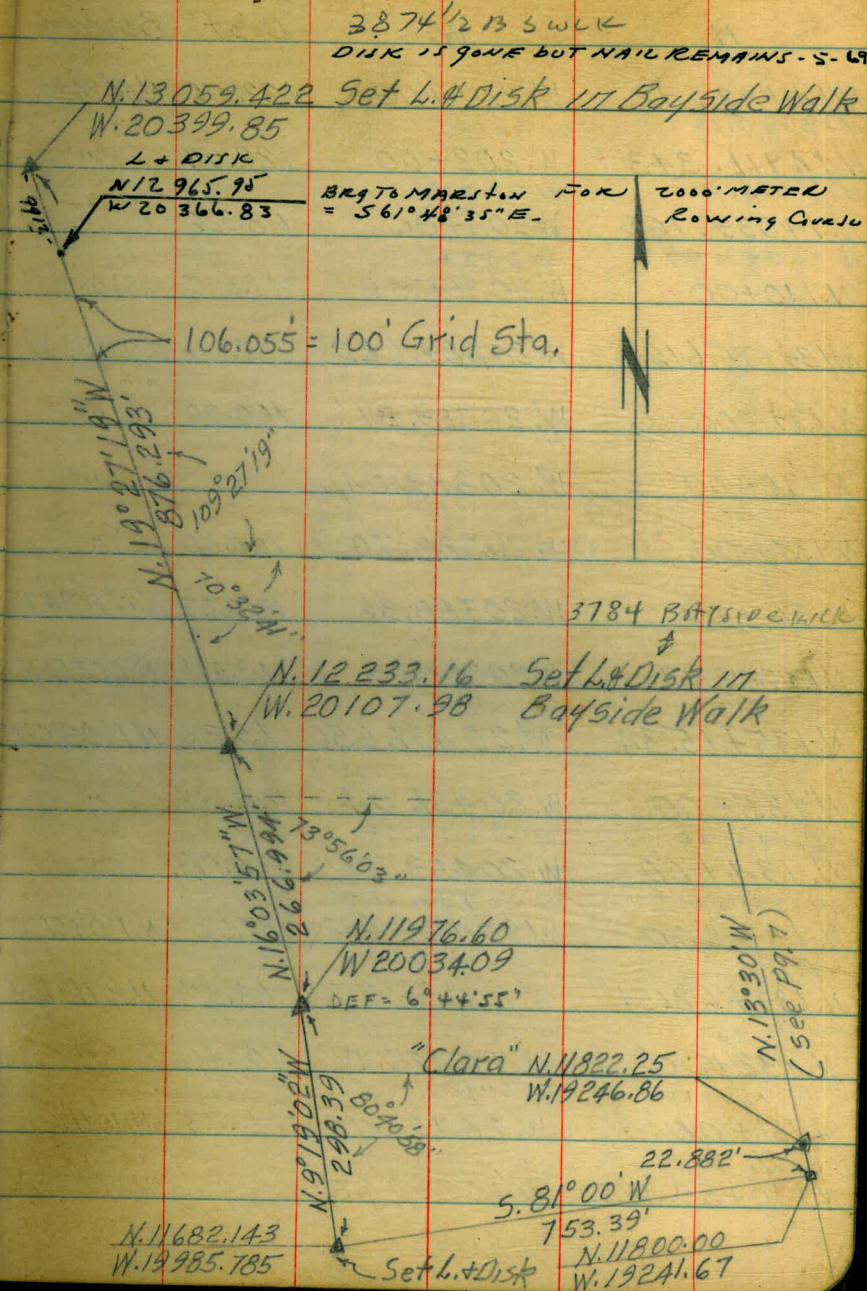 3874 1/2 B S WLK
DISK IS GONE BUT NAIL REMAINS - 5-69
N. 13059.422 Set L.&Disk in Bayside Walk
W. 20399.85
L & DISK
N 12 965.95
W 20 366.83
BRG TO MARSTON FOR 2000 METER
= S 61° 48' 35" E. Rowing Course
106.055' = 100' Grid Sta.
N
N. 19° 27' 19" W
876.293'
109° 27' 19"
3784 BAYSIDE WLK
N. 12 233.16 Set L.&Disk in
W. 20107.98 Bayside Walk
N. 16° 03' 57" W
266.994'
73° 56' 03"
N. 11976.60
W 20034.09
DEF = 6° 44' 55"
N. 13° 30' W
(see Pg. 7)
"Clara" N. 11822.25
W. 19246.86
N. 9° 19' 02" W
298.39
80° 40' 58"
22.882'
S. 81° 00' W
753.39'
N. 11682.143
W. 19985.785
Set L.&Disk
N. 11800.00
W. 19241.67